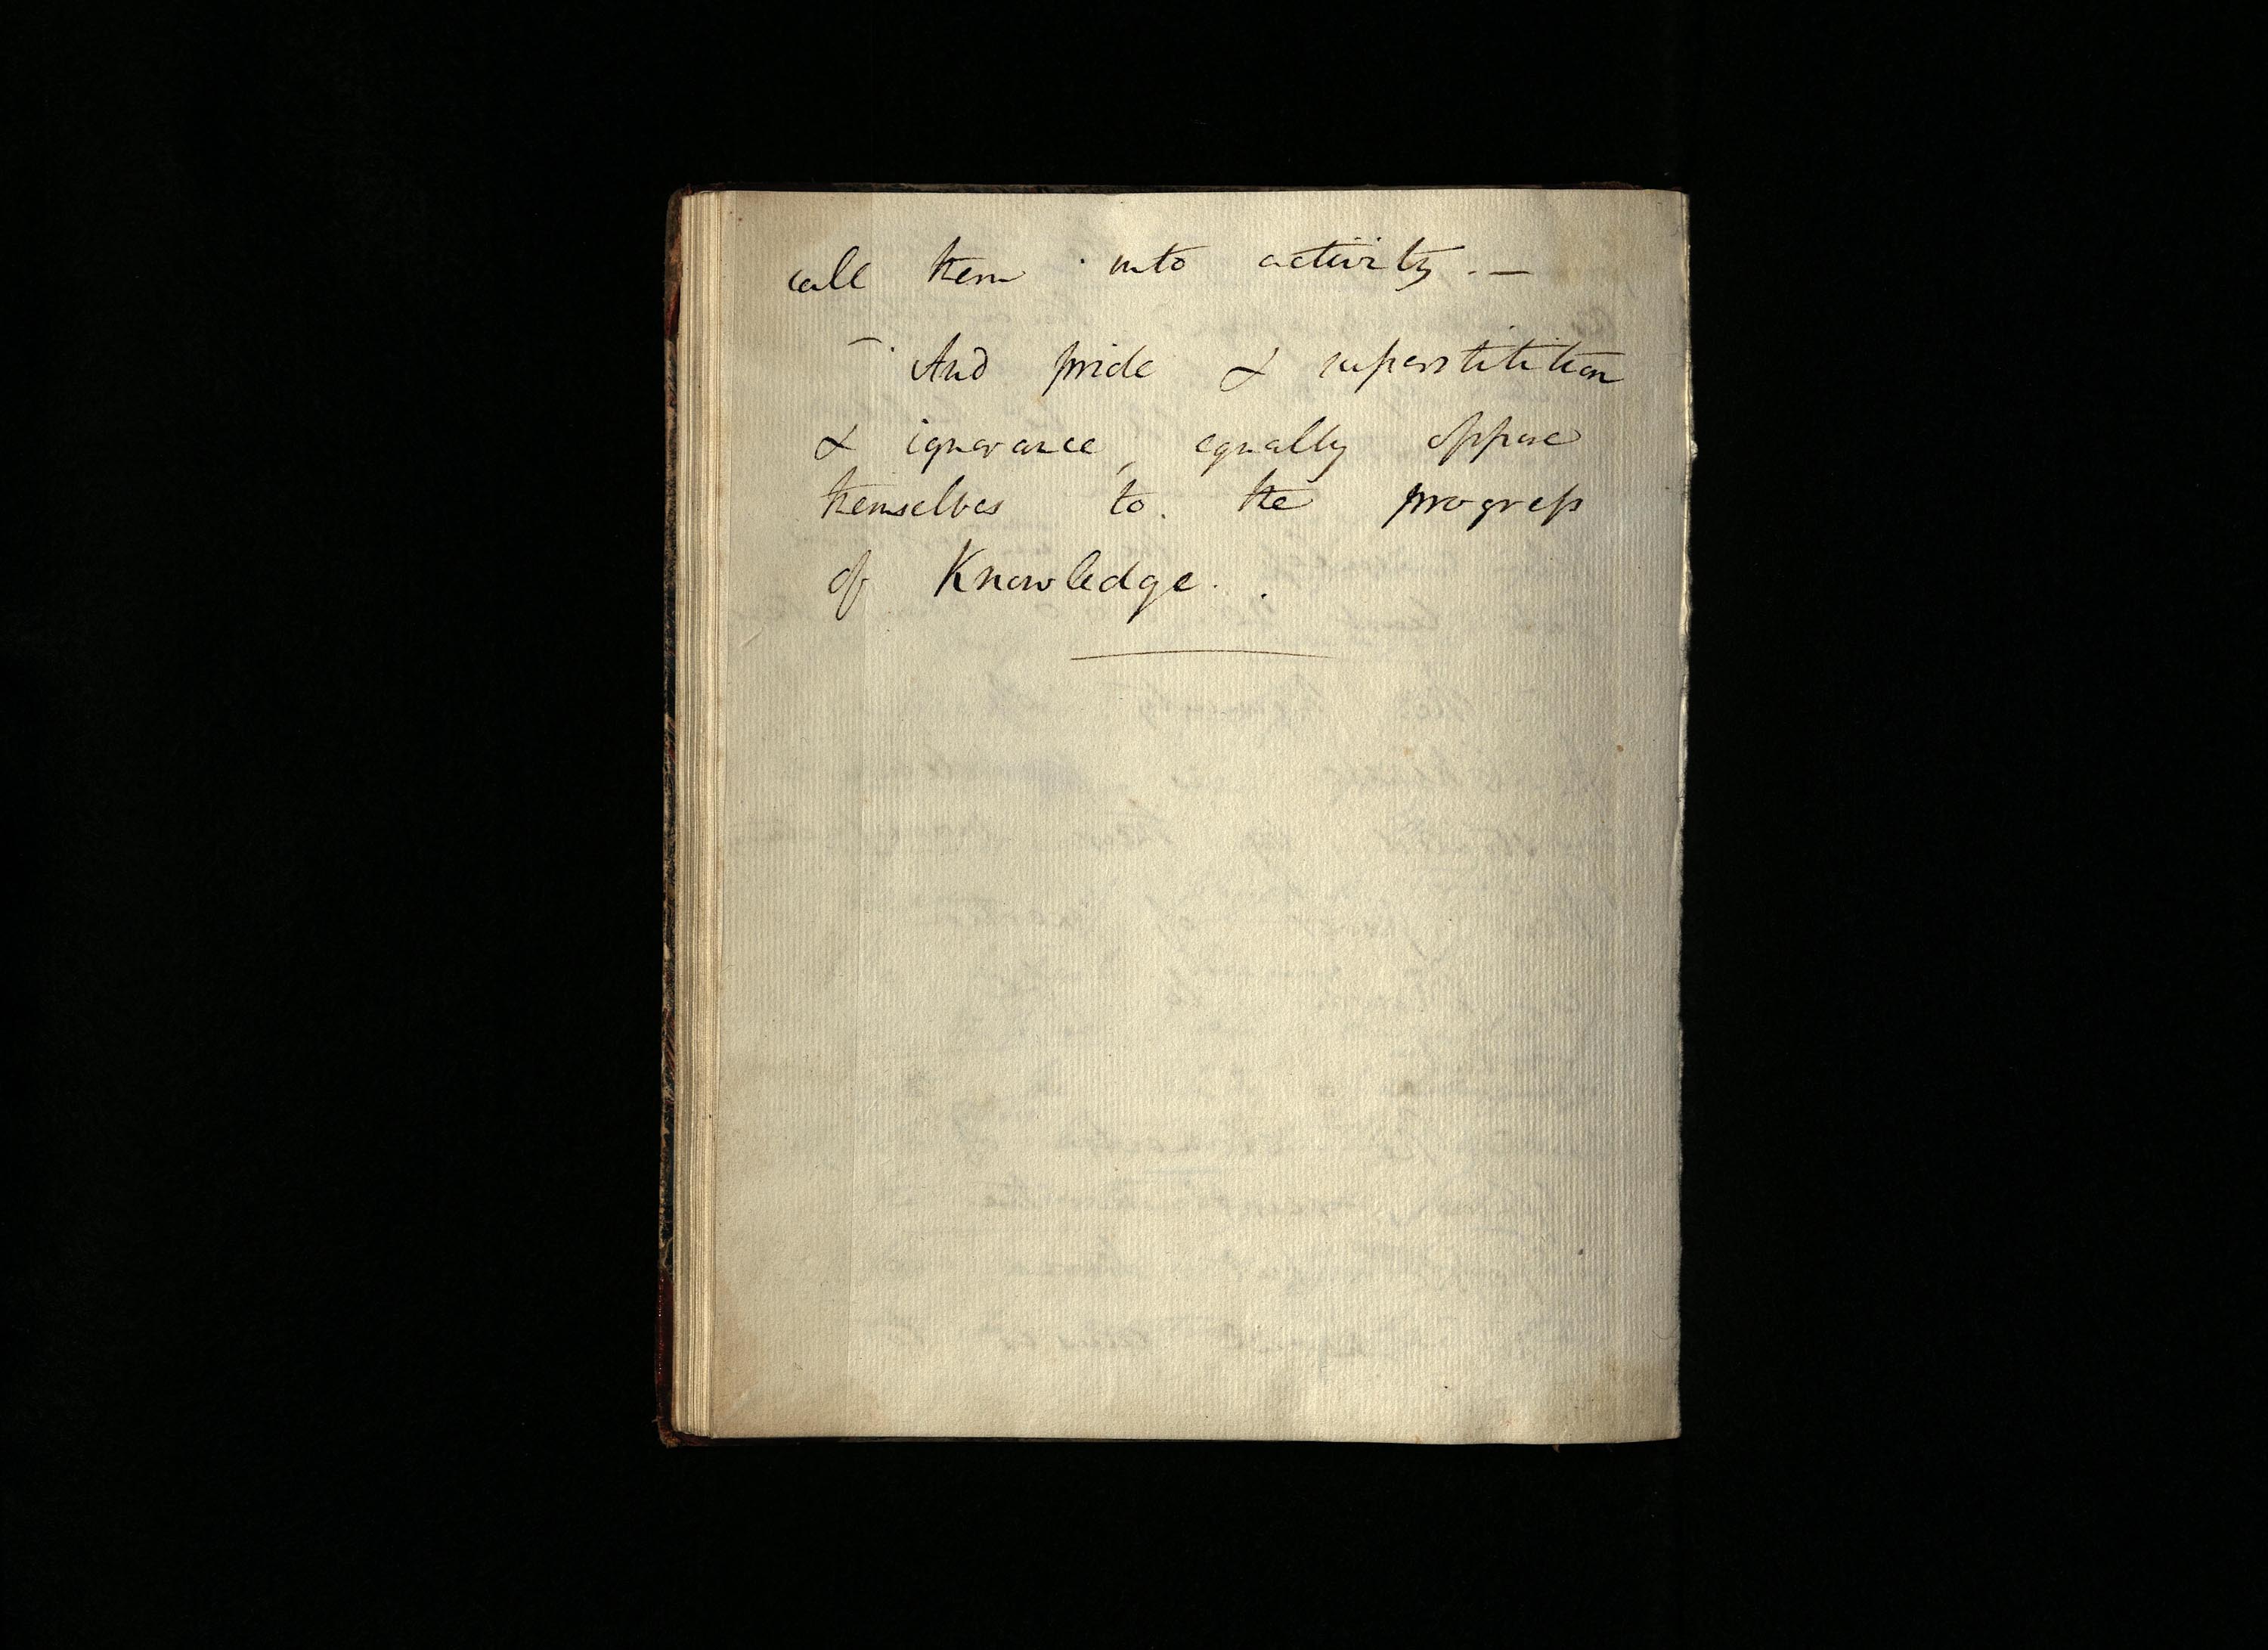 call them into activity. —
— And pride & superstitition
& ignorance, equally oppose
themselves to the progress
of Knowledge.